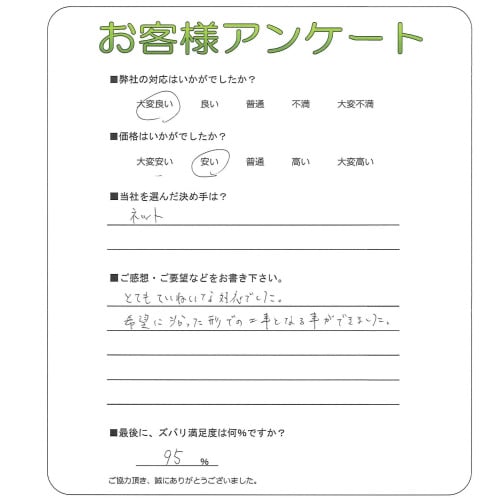 お客様アンケート
■弊社の対応はいかがでしたか？
大変良い 良い 普通 不満 大変不満
■価格はいかがでしたか？
大変安い 安い 普通 高い 大変高い
■当社を選んだ決め手は？
ネット
■ご感想・ご要望などをお書き下さい。
とてもていねいな対応でした。
希望に沿った形での工事となる事ができました。
■最後に、ズバリ満足度は何%ですか？
95 %
ご協力頂き、誠にありがとうございました。